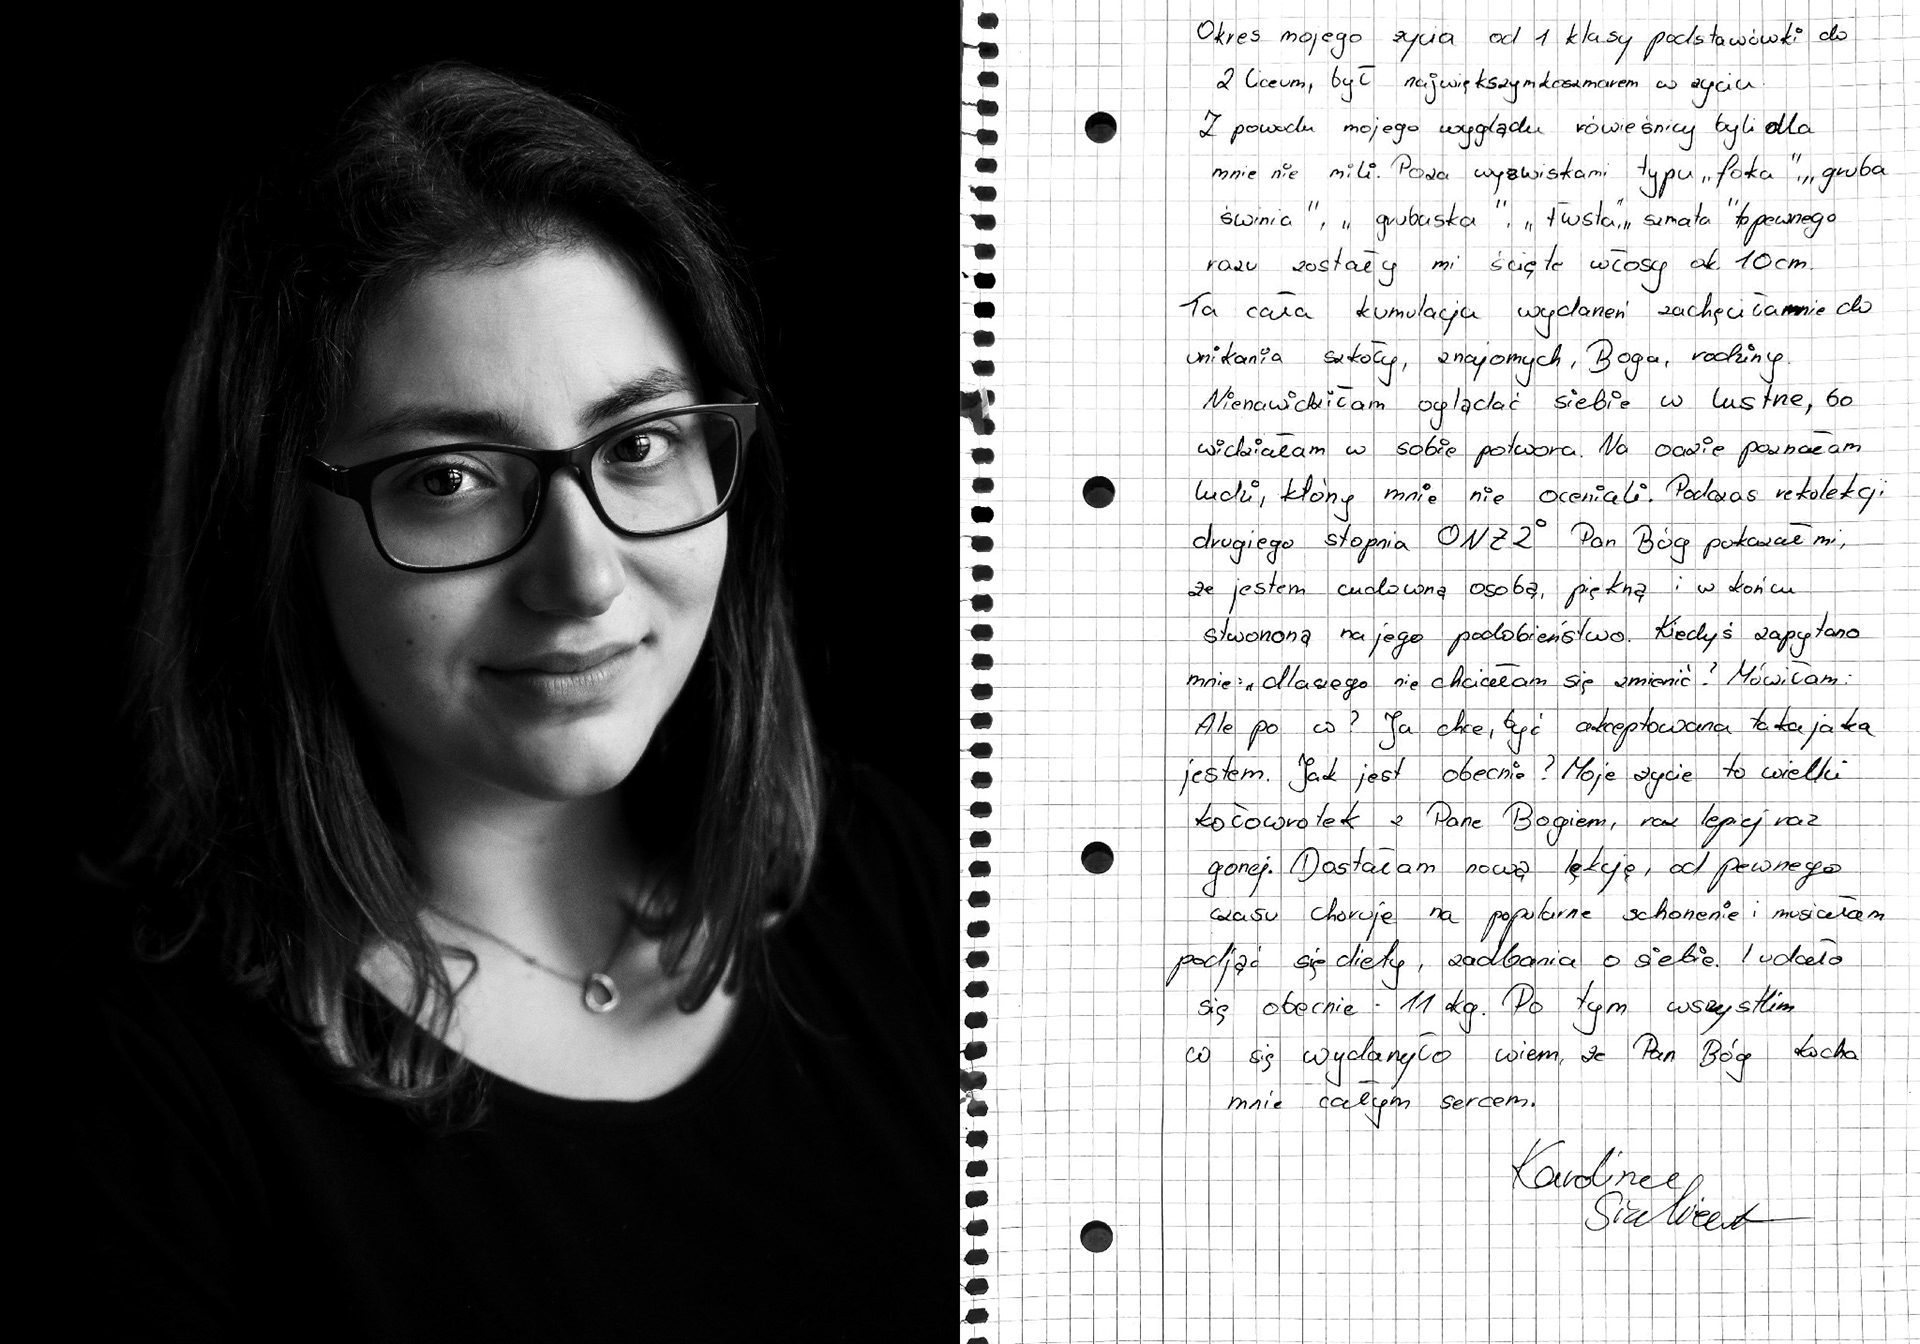 Okres mojego życia od 1 klasy podstawówki do
2 liceum, był największym koszmarem w życiu.
Z powodu mojego wyglądu rówieśnicy byli dla
mnie nie mili. Poza wyzwiskami typu „foka", „gruba
świnia", „grubaska", „tłusta", „szmata" to pewnego
razu zostały mi ścięte włosy ok. 10cm.
Ta cała kumulacja wydarzeń zachęciła mnie do
unikania szkoły, znajomych, Boga, rodziny.
Nienawidziłam oglądać siebie w lustrze, bo
widziałam w sobie potwora. Na oazie poznałam
ludzi, którzy mnie nie oceniali. Podczas rekolekcji
drugiego stopnia ONŻ2° Pan Bóg pokazał mi,
że jestem cudowną osobą, piękną i w końcu
stworzoną na jego podobieństwo. Kiedyś zapytano
mnie: „dlaczego nie chciałam się zmienić? Mówiłam:
Ale po co? Ja chce, być akceptowana taka jaka
jestem. Jak jest obecnie? Moje życie to wielki
kołowrotek z Pane Bogiem, raz lepiej raz
gorzej. Dostałam nową lekcję, od pewnego
czasu choruje na popularne schorzenie i musiałam
podjąć się diety, zadbania o siebie. I udało
się obecnie - 11 kg. Po tym wszystkim
co się wydarzyło wiem, że Pan Bóg kocha
mnie całym sercem.